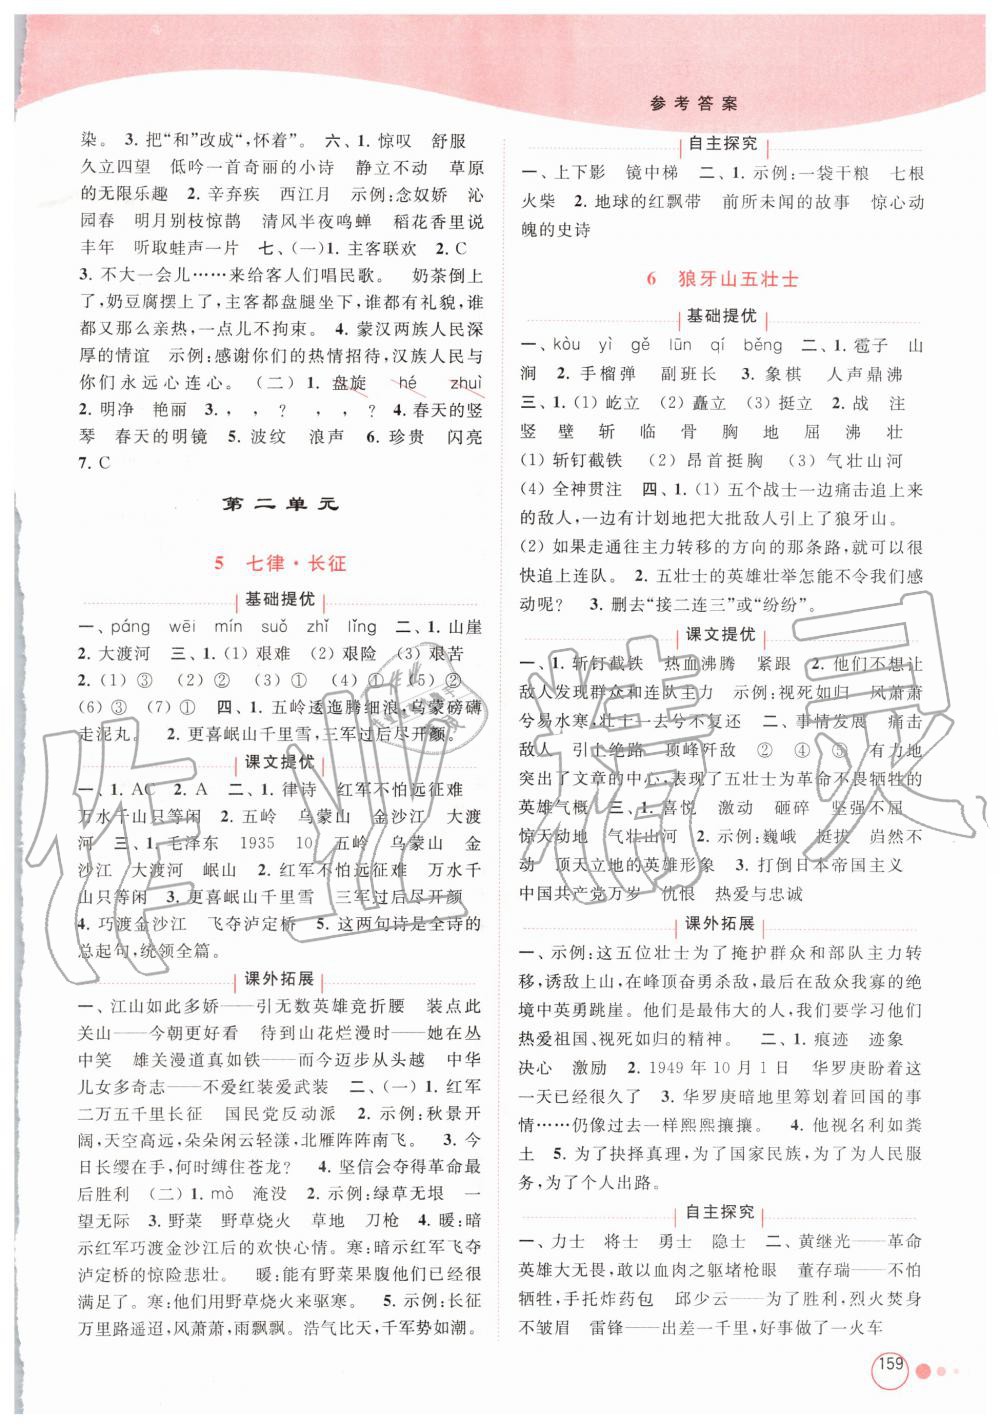 参考答案
染。 3. 把“和”改成“,怀着”。 六、1. 惊叹 舒服
久立四望 低吟一首奇丽的小诗 静立不动 草原
的无限乐趣 2. 辛弃疾 西江月 示例:念奴娇 沁
园春 明月别枝惊鹊 清风半夜鸣蝉 稻花香里说
丰年 听取蛙声一片 七、(一)1. 主客联欢 2. C
3. 不大一会儿……来给客人们唱民歌。 奶茶倒上
了,奶豆腐摆上了,主客都盘腿坐下,谁都有礼貌,谁
都又那么亲热,一点儿不拘束。 4. 蒙汉两族人民深
厚的情谊 示例:感谢你们的热情招待,汉族人民与
你们永远心连心。 (二)1. 盘旋 hé zhuì
2. 明净 艳丽 3. , ? , , ? 4. 春天的竖
琴 春天的明镜 5. 波纹 浪声 6. 珍贵 闪亮
7. C
第二单元
5 七律·长征
基础提优
一、páng wēi mín suǒ zhǐ lǐng 二、1. 山崖
2. 大渡河 三、1. (1) 艰难 (2) 艰险 (3) 艰苦
2. (1) ③ (2) ① (3) ① (4) ② (5) ②
(6) ③ (7) ① 四、1. 五岭逶迤腾细浪,乌蒙磅礴
走泥丸。 2. 更喜岷山千里雪,三军过后尽开颜。
课文提优
一、1. AC 2. A 二、1. 律诗 红军不怕远征难
万水千山只等闲 2. 五岭 乌蒙山 金沙江 大渡
河 三、1. 毛泽东 1935 10 五岭 乌蒙山 金
沙江 大渡河 岷山 2. 红军不怕远征难 万水千
山只等闲 3. 更喜岷山千里雪 三军过后尽开颜
4. 巧渡金沙江 飞夺泸定桥 5. 这两句诗是全诗的
总起句,统领全篇。
课外拓展
一、江山如此多娇——引无数英雄竞折腰 装点此
关山——今朝更好看 待到山花烂漫时——她在丛
中笑 雄关漫道真如铁——而今迈步从头越 中华
儿女多奇志——不爱红装爱武装 二、(一)1. 红军
二万五千里长征 国民党反动派 2. 示例:秋景开
阔,天空高远,朵朵闲云轻漾,北雁阵阵南飞。 3. 今
日长缨在手,何时缚住苍龙? 4. 坚信会夺得革命最
后胜利 (二)1. mò 淹没 2. 示例:绿草无垠 一
望无际 3. 野菜 野草烧火 草地 刀枪 4. 暖:暗
示红军巧渡金沙江后的欢快心情。寒:暗示红军飞夺
泸定桥的惊险悲壮。 暖:能有野菜果腹他们已经很
满足了。寒:他们用野草烧火来驱寒。 5. 示例:长征
万里路遥迢,风萧萧,雨飘飘。浩气比天,千军势如潮。
自主探究
一、上下影 镜中梯 二、1. 示例:一袋干粮 七根
火柴 2. 地球的红飘带 前所未闻的故事 惊心动
魄的史诗
6 狼牙山五壮士
基础提优
一、kòu yì gě lūn qí běng 二、1. 雹子 山
涧 2. 手榴弹 副班长 3. 象棋 人声鼎沸
三、1. (1) 屹立 (2) 矗立 (3) 挺立 2. 战 注
竖 壁 斩 临 骨 胸 地 屈 沸 壮
(1) 斩钉截铁 (2) 昂首挺胸 (3) 气壮山河
(4) 全神贯注 四、1. (1) 五个战士一边痛击追上来
的敌人,一边有计划地把大批敌人引上了狼牙山。
(2) 如果走通往主力转移的方向的那条路,就可以很
快追上连队。 2. 五壮士的英雄壮举怎能不令我们感
动呢? 3. 删去“接二连三”或“纷纷”。
课文提优
一、1. 斩钉截铁 热血沸腾 紧跟 2. 他们不想让
敌人发现群众和连队主力 示例:视死如归 风萧萧
兮易水寒,壮士一去兮不复还 二、事情发展 痛击
敌人 引上绝路 顶峰歼敌 ② ④ ⑤ 有力地
突出了文章的中心,表现了五壮士为革命不畏牺牲的
英雄气概 三、1. 喜悦 激动 砸碎 坚强不屈
惊天动地 气壮山河 2. 示例:巍峨 挺拔 岿然不
动 顶天立地的英雄形象 3. 打倒日本帝国主义
中国共产党万岁 仇恨 热爱与忠诚
课外拓展
一、示例:这五位壮士为了掩护群众和部队主力转
移,诱敌上山,在峰顶奋勇杀敌,最后在敌众我寡的绝
境中英勇跳崖。他们是最伟大的人,我们要学习他们
热爱祖国、视死如归的精神。 二、1. 痕迹 迹象
决心 激励 2. 1949 年 10 月 1 日 华罗庚盼着这
一天已经很久了 3. 华罗庚暗地里筹划着回国的事
情……仍像过去一样熙熙攘攘。 4. 他视名利如粪
土 5. 为了抉择真理,为了国家民族,为了为人民服
务,为了个人出路。
自主探究
一、力士 将士 勇士 隐士 二、黄继光——革命
英雄大无畏,敢以血肉之躯堵枪眼 董存瑞——不怕
牺牲,手托炸药包 邱少云——为了胜利,烈火焚身
不皱眉 雷锋——出差一千里,好事做了一火车
159
作业精灵